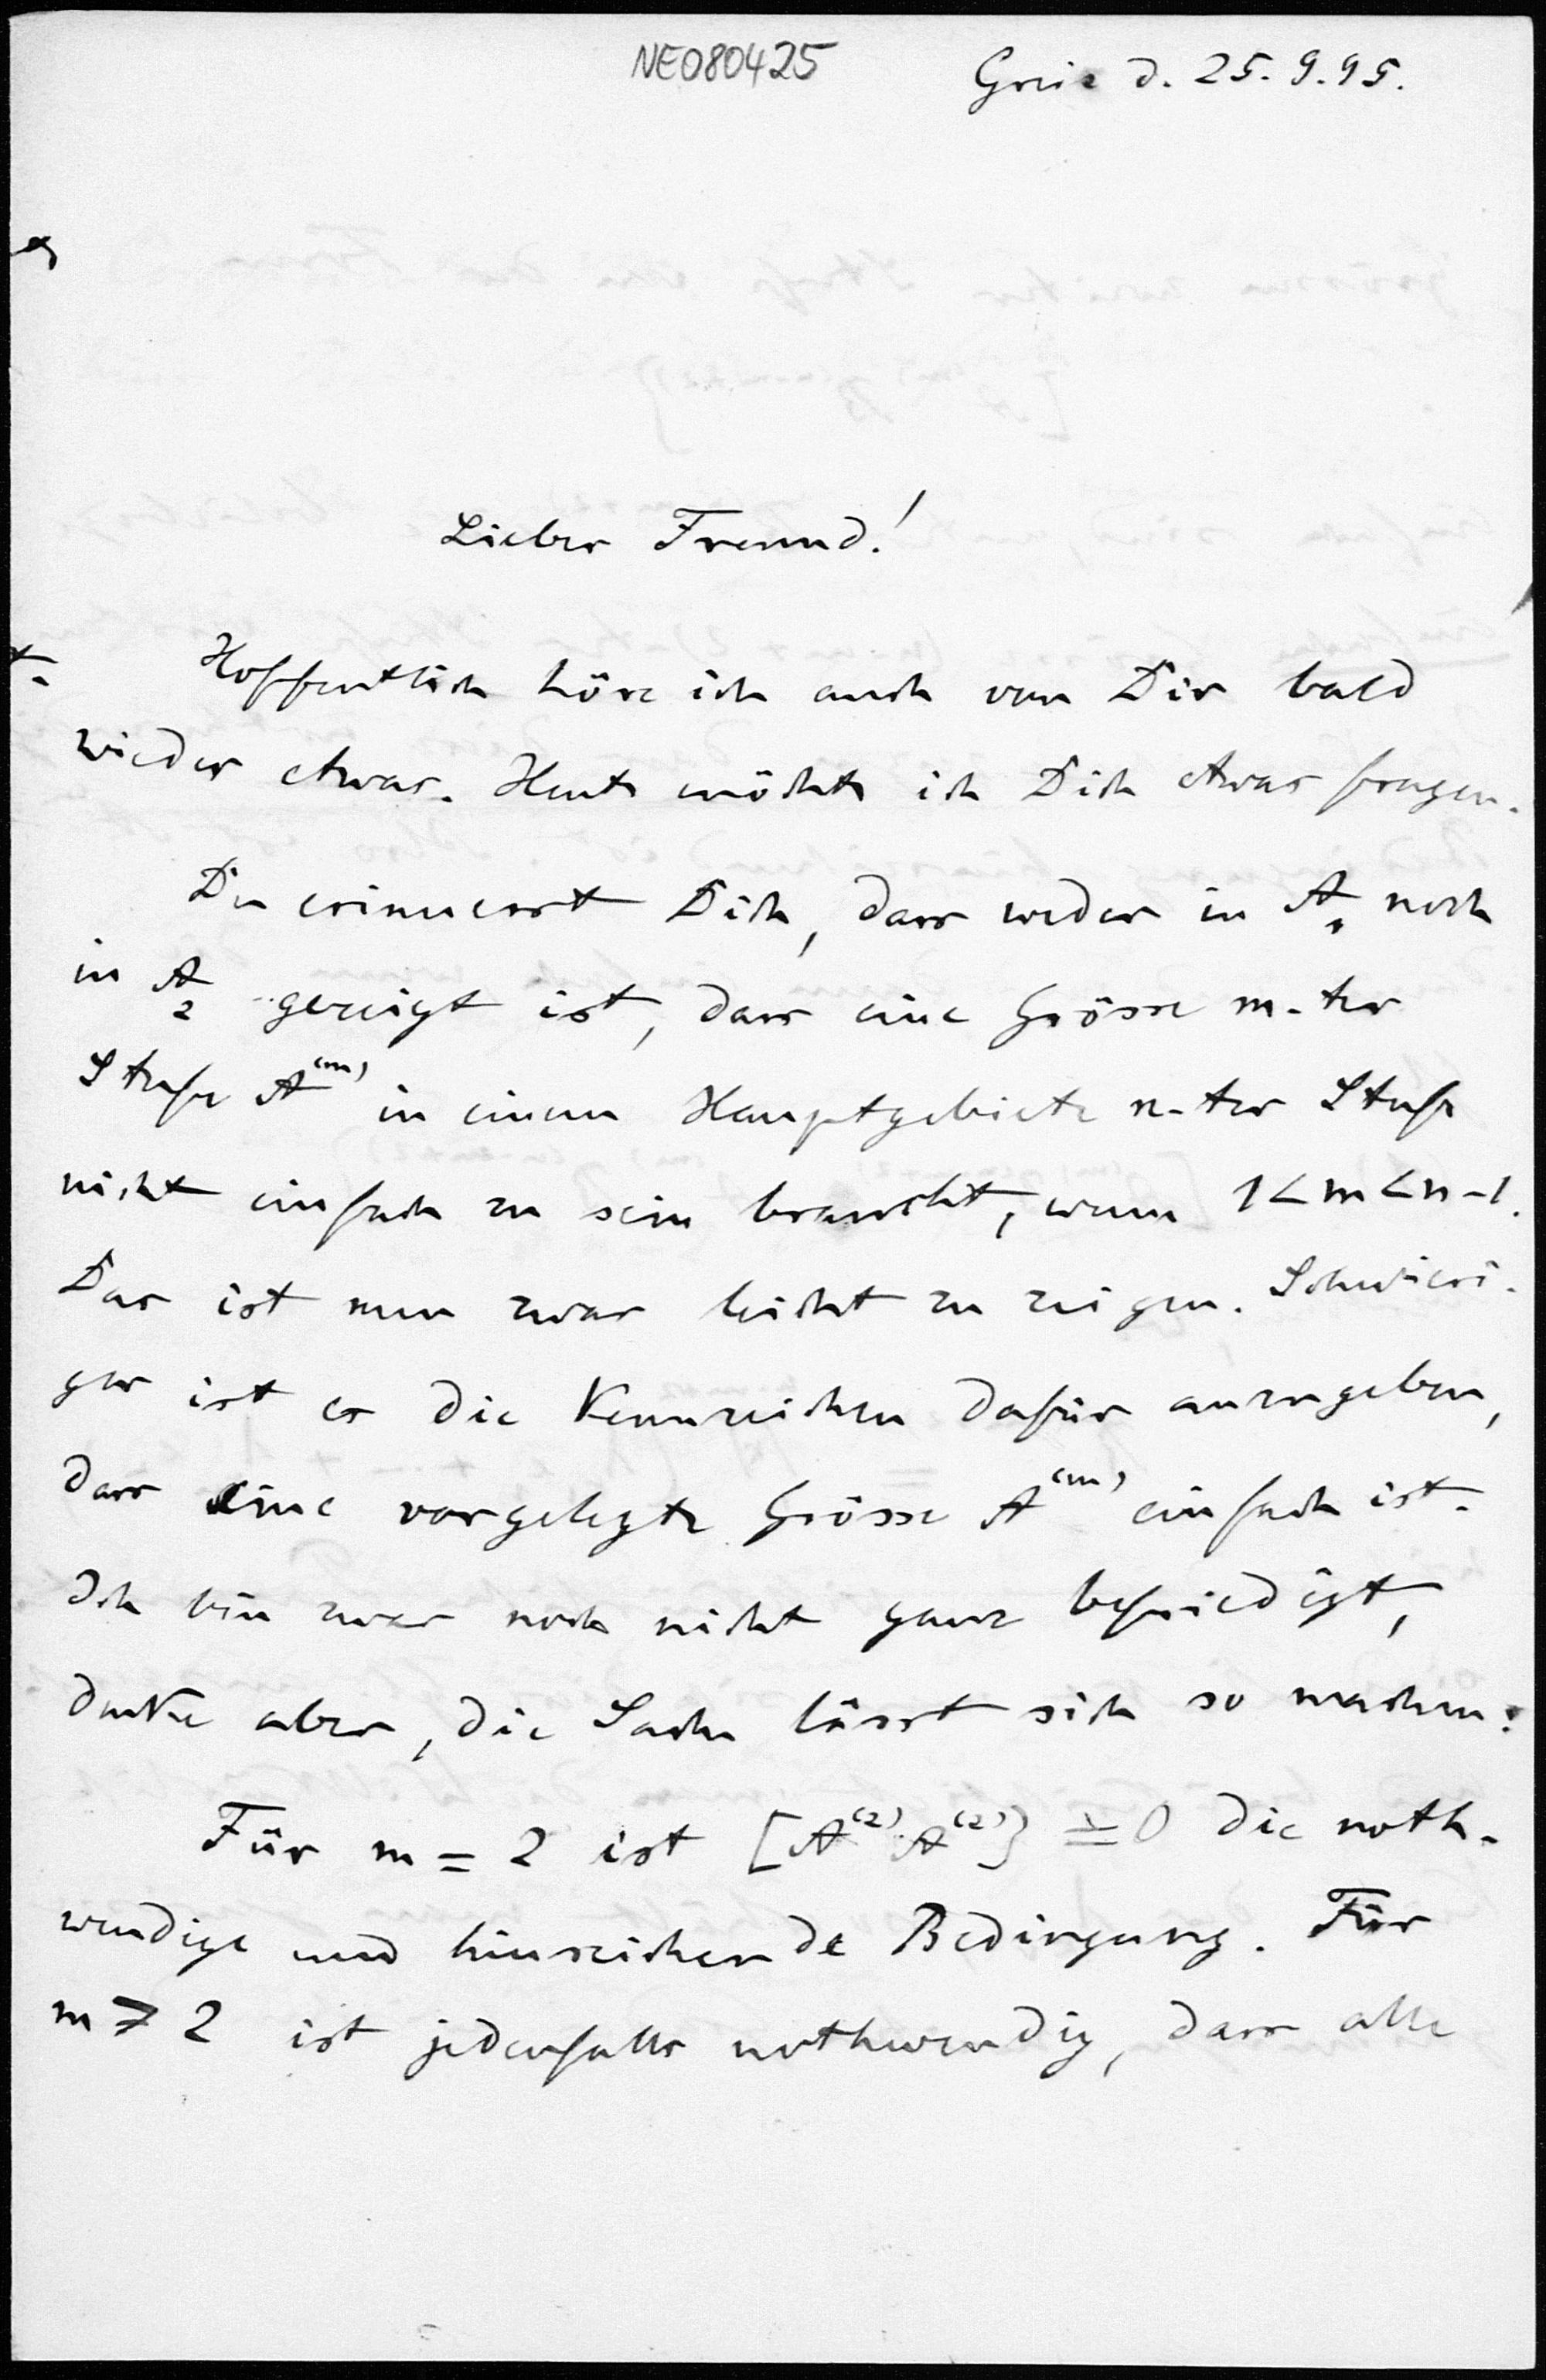 NE080425
d. 25. 9. 95.
Lieber Freund!
Hoffentlich höre ich auch von Dir bald
wieder etwas. Heute möchte ich Dich etwas fragen.
Du erinnerst Dich, dass weder in A₁ noch
in A₂ gezeigt ist, dass eine Grösse m-ter
Stufe A⁽ᵐ⁾ in einem Hauptgebiete n-ter Stufe
nicht einfach zu sein braucht, wenn 1<m<n-1.
Das ist nun zwar leicht zu zeigen. Schwieri-
ger ist es die Kennzeichen dafür anzugeben,
dass eine vorgelegte Grösse A⁽ᵐ⁾ einfach ist.
Ich bin zwar noch nicht ganz befriedigt,
denke aber, die Sache lässt sich so machen:
Für m = 2 ist [A⁽²⁾ A⁽²⁾] = 0 die noth-
wendige und hinreichende Bedingung. Für
m > 2 ist jedenfalls nothwendig, dass alle